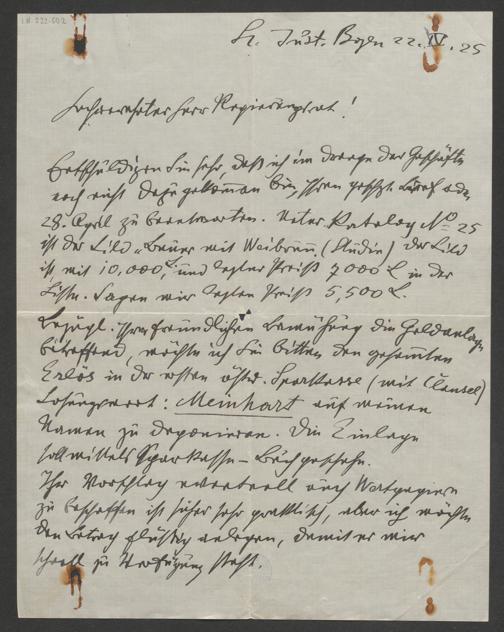 I.N. 222.502
St. Just. Bozen 22. IV. 25
Hochverehrter Herr Regierungsrat!
Entschuldigen Sie sehr, daß ich im Drange der Geschäfte
noch nicht dazu gekommen bin, Ihren gesch.
28. April zu beantworten. Unter Katalog No 25
ist das Bild „Bauer mit Weibrunn" (Studie) das Bild
ist mit 10,000 L und letzter Preiß 7000 L in der
Liste. Sagen wir letzten Preiß 5,500 L.
Bezügl. Ihrer freundlichen Bemühung die Geldanlage
betreffend, möchte ich Sie bitten den gesamten
Erlös in der ersten öster. Sparkasse (mit Clausel)
Losungswort: Meinhart auf meinen
Namen zu deponieren. Die Einlage
soll mittels Sparkasse-Buch geschehn.
Ihr Vorschlag eventuell auch Wertpapiere
zu beschaffen ist sicher sehr praktisch, aber ich möchte
den Betrag flüssig anlegen, damit er mir
schnell zu Verfügung steht.